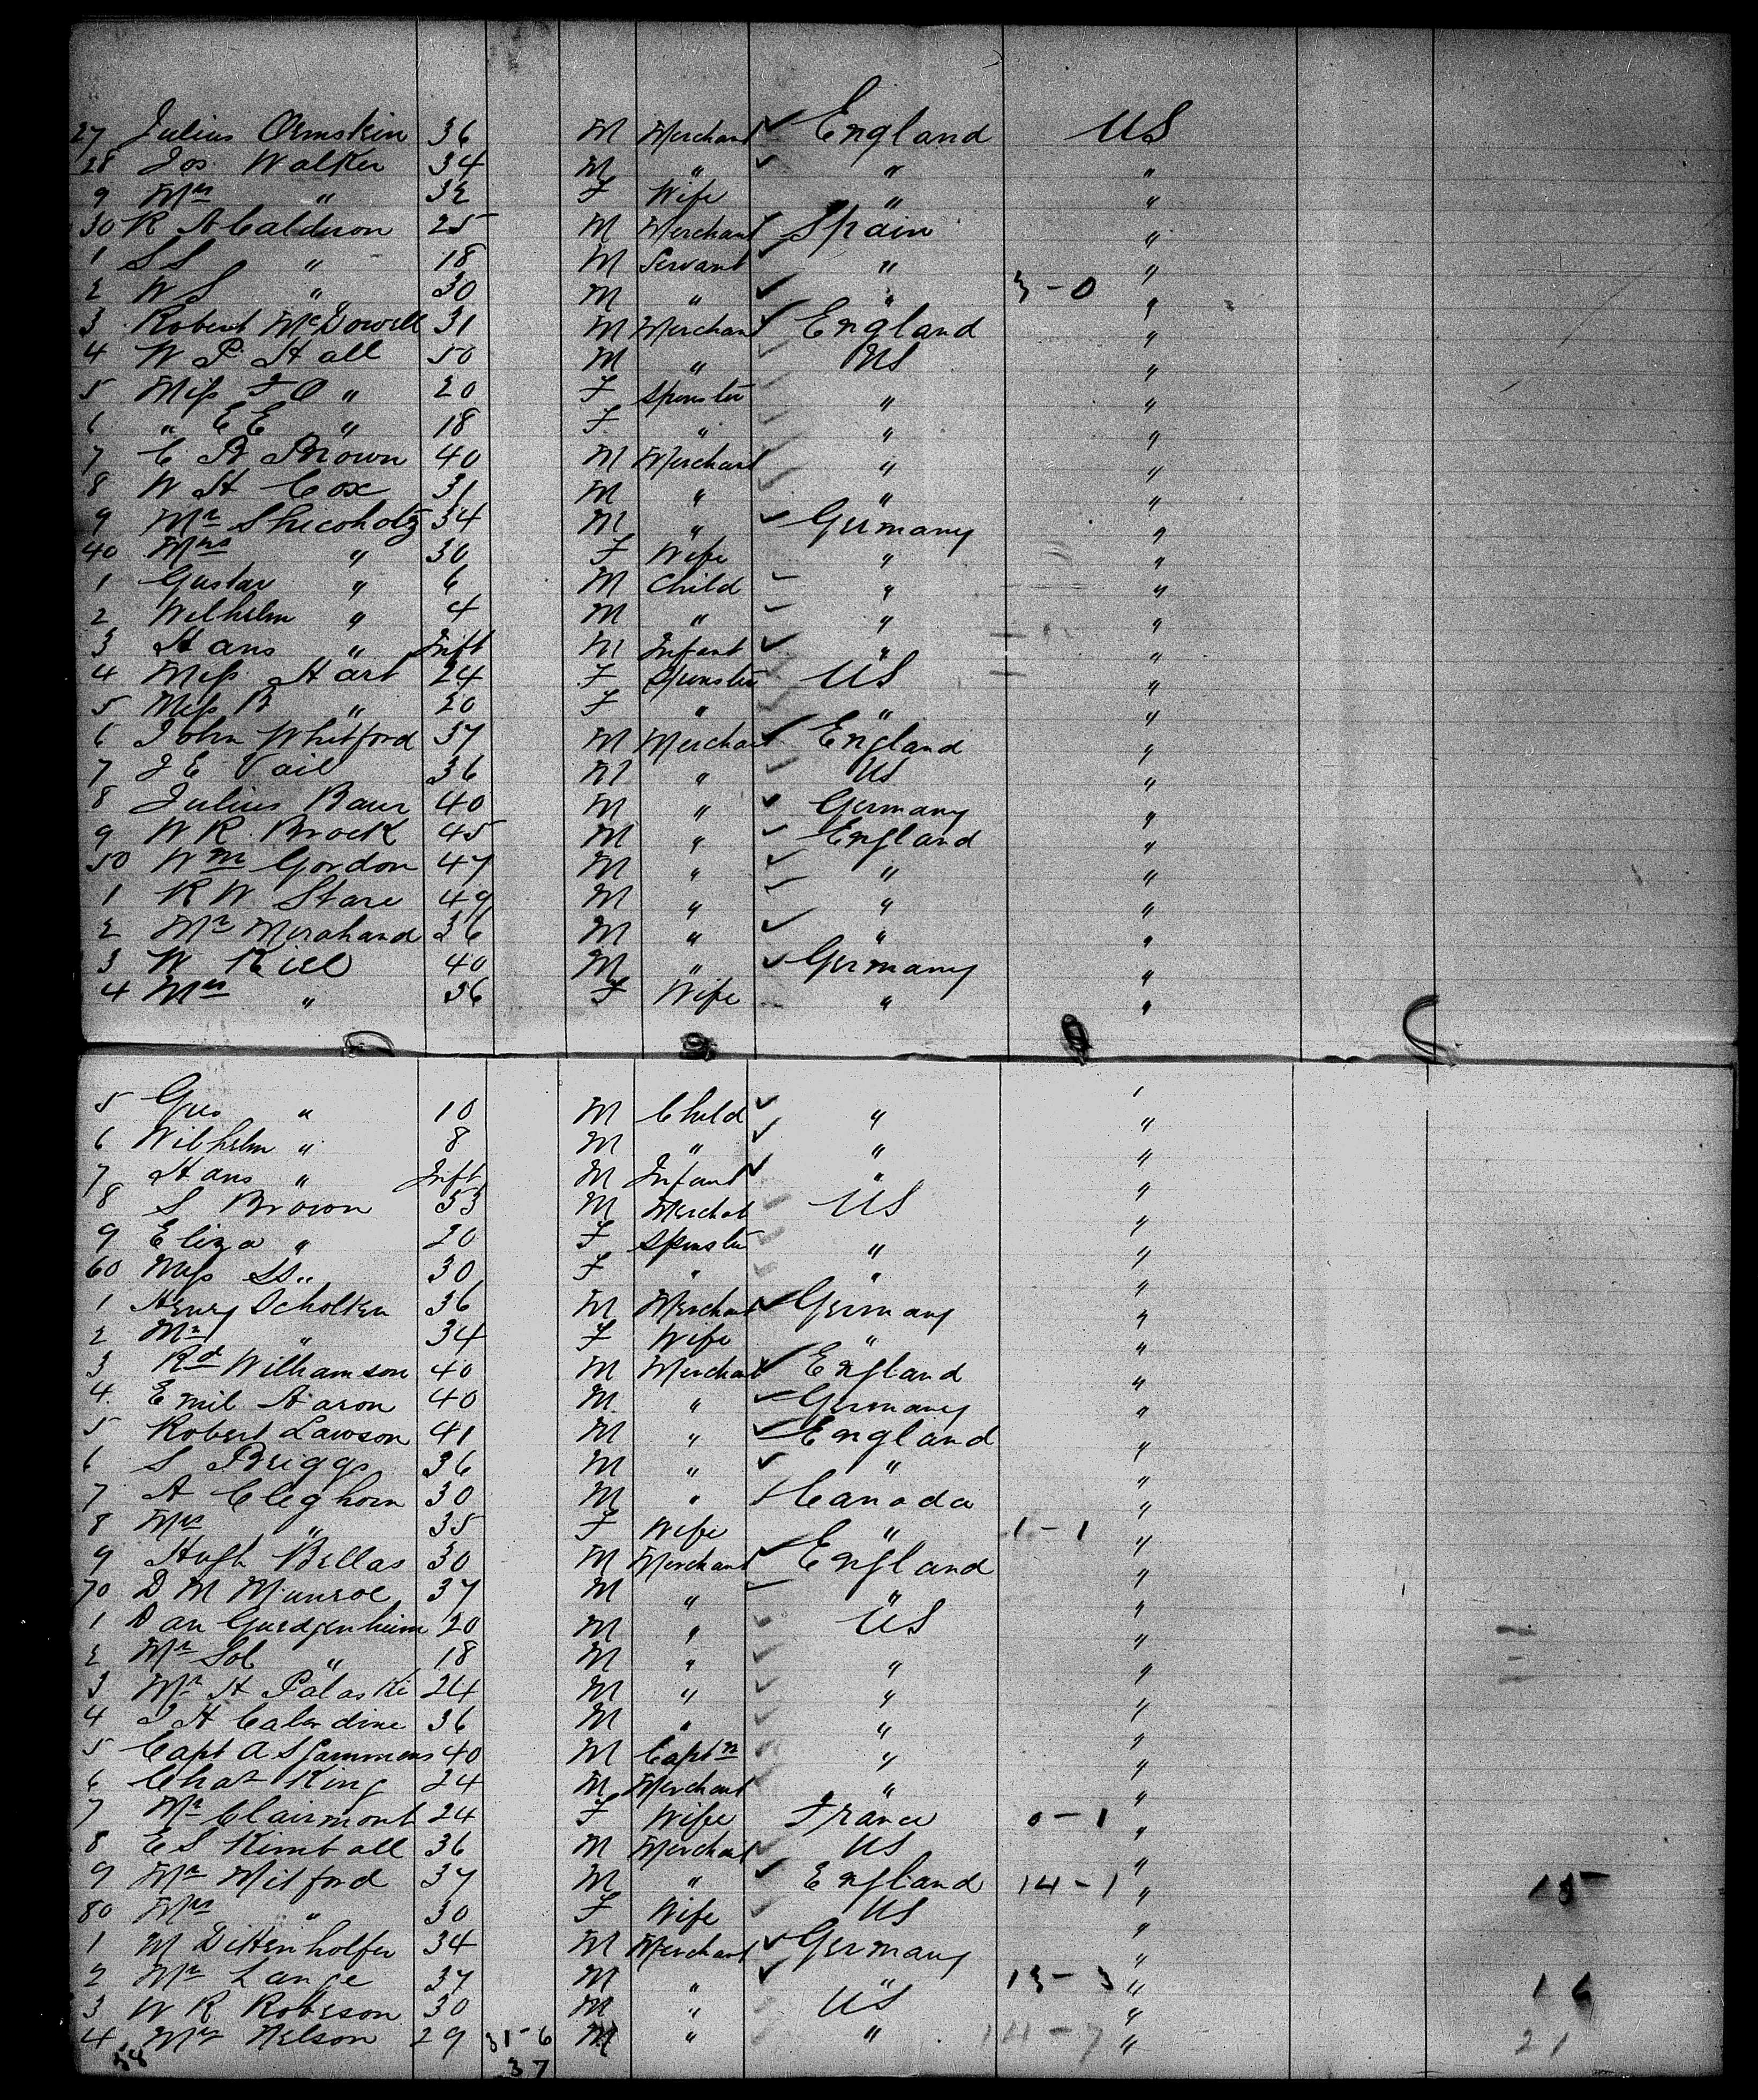 27 Julius Ormskin 36 M Merchant ✓ England US
28 Jos Walker 34 M " ✓ " "
9 Mrs " 32 F Wife " "
30 R A Calderon 25 M Merchant ✓ Spain "
1 S S " 18 M Servant ✓ " "
2 W S " 30 M " ✓ " 3-0 "
3 Robert McDowell 31 M Merchant ✓ England "
4 W P Hall 50 M " ✓ US "
5 Miss F O " 20 F Spinster " "
6 " E E " 18 F " " "
7 C B Brown 40 M Merchant " "
8 W H Cox 31 M " " "
9 Mr Shicoholz 34 M " ✓ Germany "
40 Mrs " 30 F Wife " "
1 Gustav " 6 M Child ✓ " "
2 Wilhelm " 4 M " ✓ " "
3 Hans " Inft M Infant ✓ " "
4 Miss Hart 24 F Spinster US "
5 Miss B " 20 F " " "
6 John Whitford 37 M Merchant ✓ England "
7 J E Vail 36 M " ✓ US "
8 Julius Baur 40 M " ✓ Germany "
9 W R Brock 45 M " ✓ England "
50 Wm Gordon 47 M " ✓ " "
1 R W Stare 49 M " ✓ " "
2 Mr Merahand 36 M " ✓ " "
3 W Kiel 40 M " ✓ Germany "
4 Mrs " 36 F Wife " "
5 Gus " 10 M Child ✓ " "
6 Wilhelm " 8 M " ✓ " "
7 Hans " Inft M Infant ✓ " "
8 S Brown 53 M Merchat ✓ US "
9 Eliza " 20 F Spinster ✓ " "
60 Miss SS " 30 F " ✓ " "
1 Henry Scholken 36 M Merchant ✓ Germany "
2 Mrs " 34 F Wife " "
3 Rd Williamson 40 M Merchant ✓ England "
4 Emil Aaron 40 M " ✓ Germany "
5 Robert Lawson 41 M " ✓ England "
6 S Briggs 36 M " ✓ " "
7 A Cleghorn 30 M " ✓ Canada "
8 Mrs " 35 F Wife " 1-1 "
9 Hugh Bellas 30 M Merchant ✓ England "
70 D M Munroe 37 M " ✓ " "
1 Dan 20 M " ✓ US "
2 Mr Sol " 18 M " ✓ " "
3 Mr H Palaski 24 M " ✓ " "
4 J H 36 M " ✓ " "
5 Capt A S 40 M Captn ✓ " "
6 Chas King 24 M Merchant ✓ " "
7 Mr Clairmont 24 F Wife France 0-1 "
8 E S Kimball 36 M Merchant ✓ US "
9 Mr Mitford 37 M " ✓ England 14-1 " 15
80 Mrs " 30 F Wife ✓ US "
1 M Dittenholfer 34 M Merchant ✓ Germany "
2 Mr Lange 37 M " ✓ " 13-3 " 16
3 W R Roberson 30 M " ✓ US "
4 Mr Nelson 29 31-6 M " " 14-7 " 21
58 37